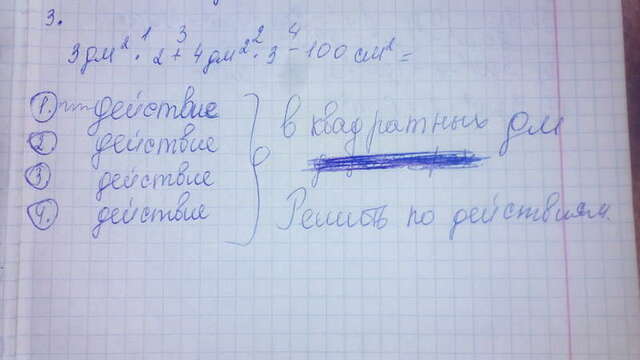 3.
1 3 2 4
3 дм² · 2 + 4 дм² · 3 - 100 см² =
1. действие
2. действие
3 действие
4. действие
в квадратных дм
Решить по действиям.